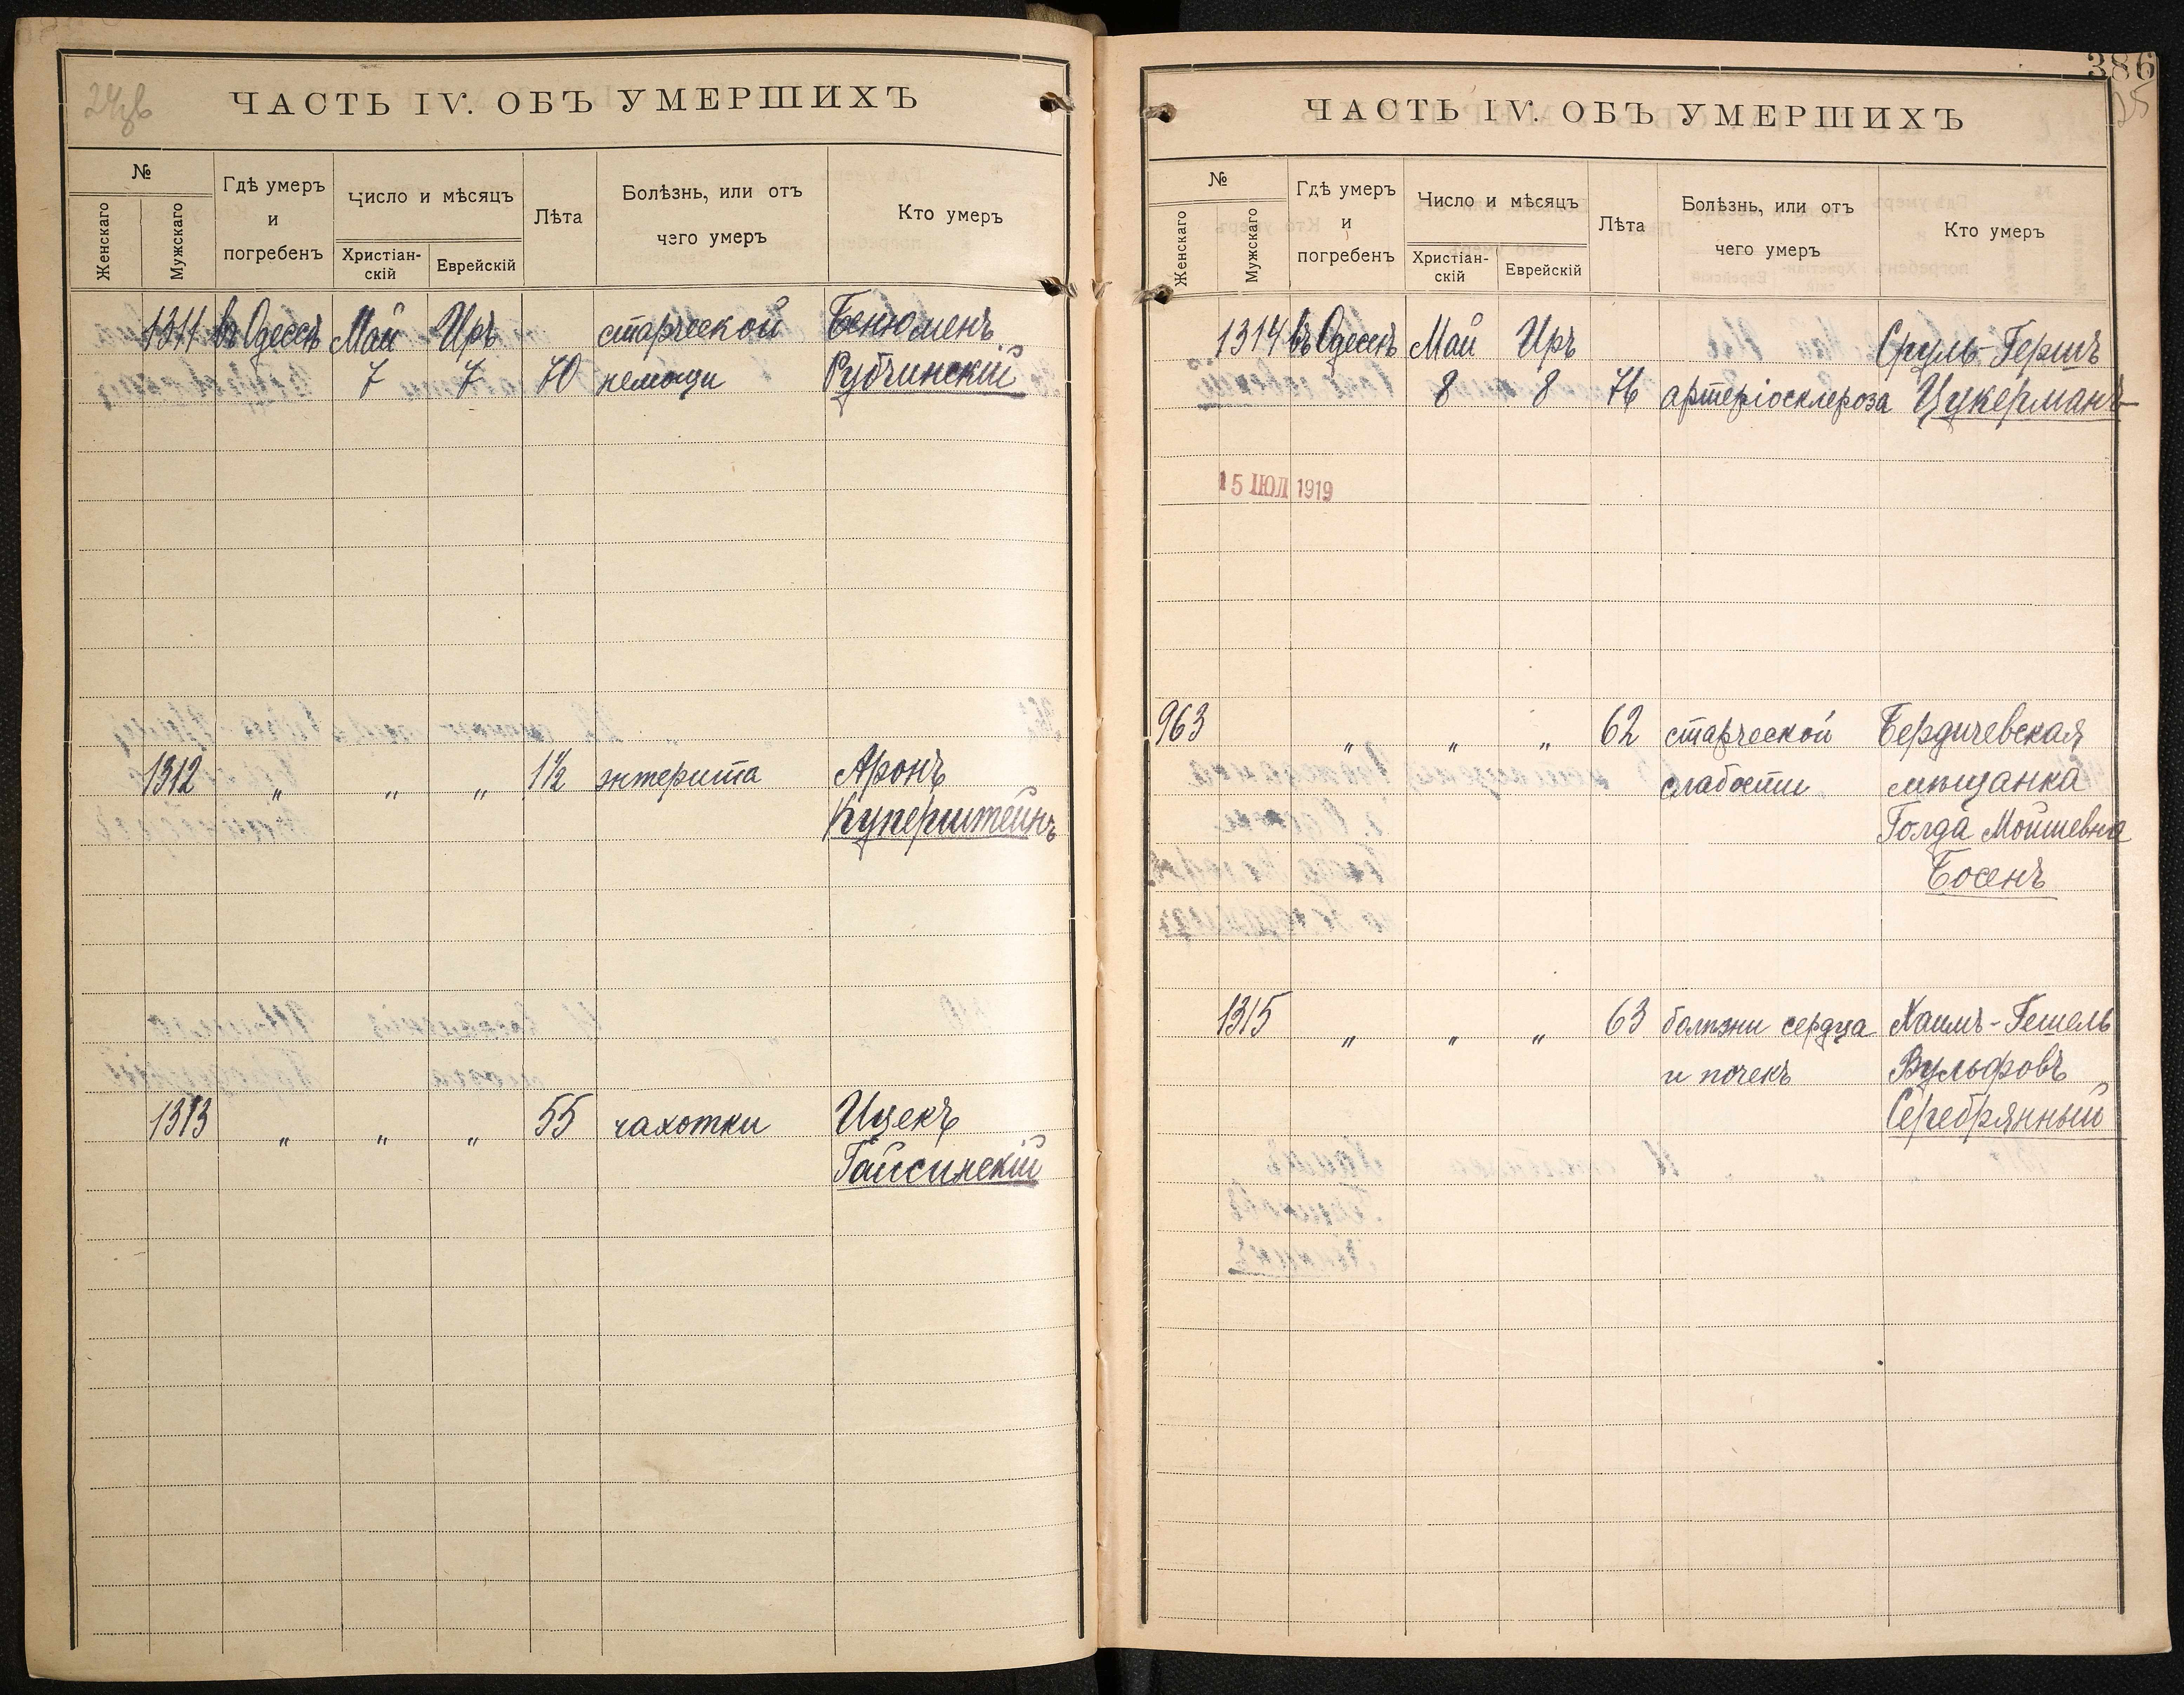 ЧАСТЬ IV. ОБЪ УМЕРШИХЪ
№
Женскаго
Мужскаго
Гдѣ умеръ
и
погребенъ
Число и мѣсяцъ
Христіан-
скій
Еврейскій
Лѣта
Болѣзнь, или отъ
чего умеръ
Кто умеръ
1311 въ Одессѣ Май Иръ старческой Бенюменъ
7 7 70 немощи Рубчинскій
1312 " " " 1½ энтерита Аронъ
Куперштейнъ
1313 " " " 55 чахотки Ицекъ
Гайсинскій
386
ЧАСТЬ IV. ОБЪ УМЕРШИХЪ
№
Женскаго
Мужскаго
Гдѣ умеръ
и
погребенъ
Число и мѣсяцъ
Христіан-
скій
Еврейскій
Лѣта
Болѣзнь, или отъ
чего умеръ
Кто умеръ
1314 въ Одессѣ Май Иръ Сруль-Гершъ
8 8 76 артеріосклероза Цукерманъ
15 ІЮЛ 1919
963 " " " 62 старческой Бердичевская
слабости мѣщанка
Голда Мойшевна
Босенъ
1315 " " " 63 болѣзни сердца Хаимъ-Гешель
и почекъ Вульфовъ
Серебрянный